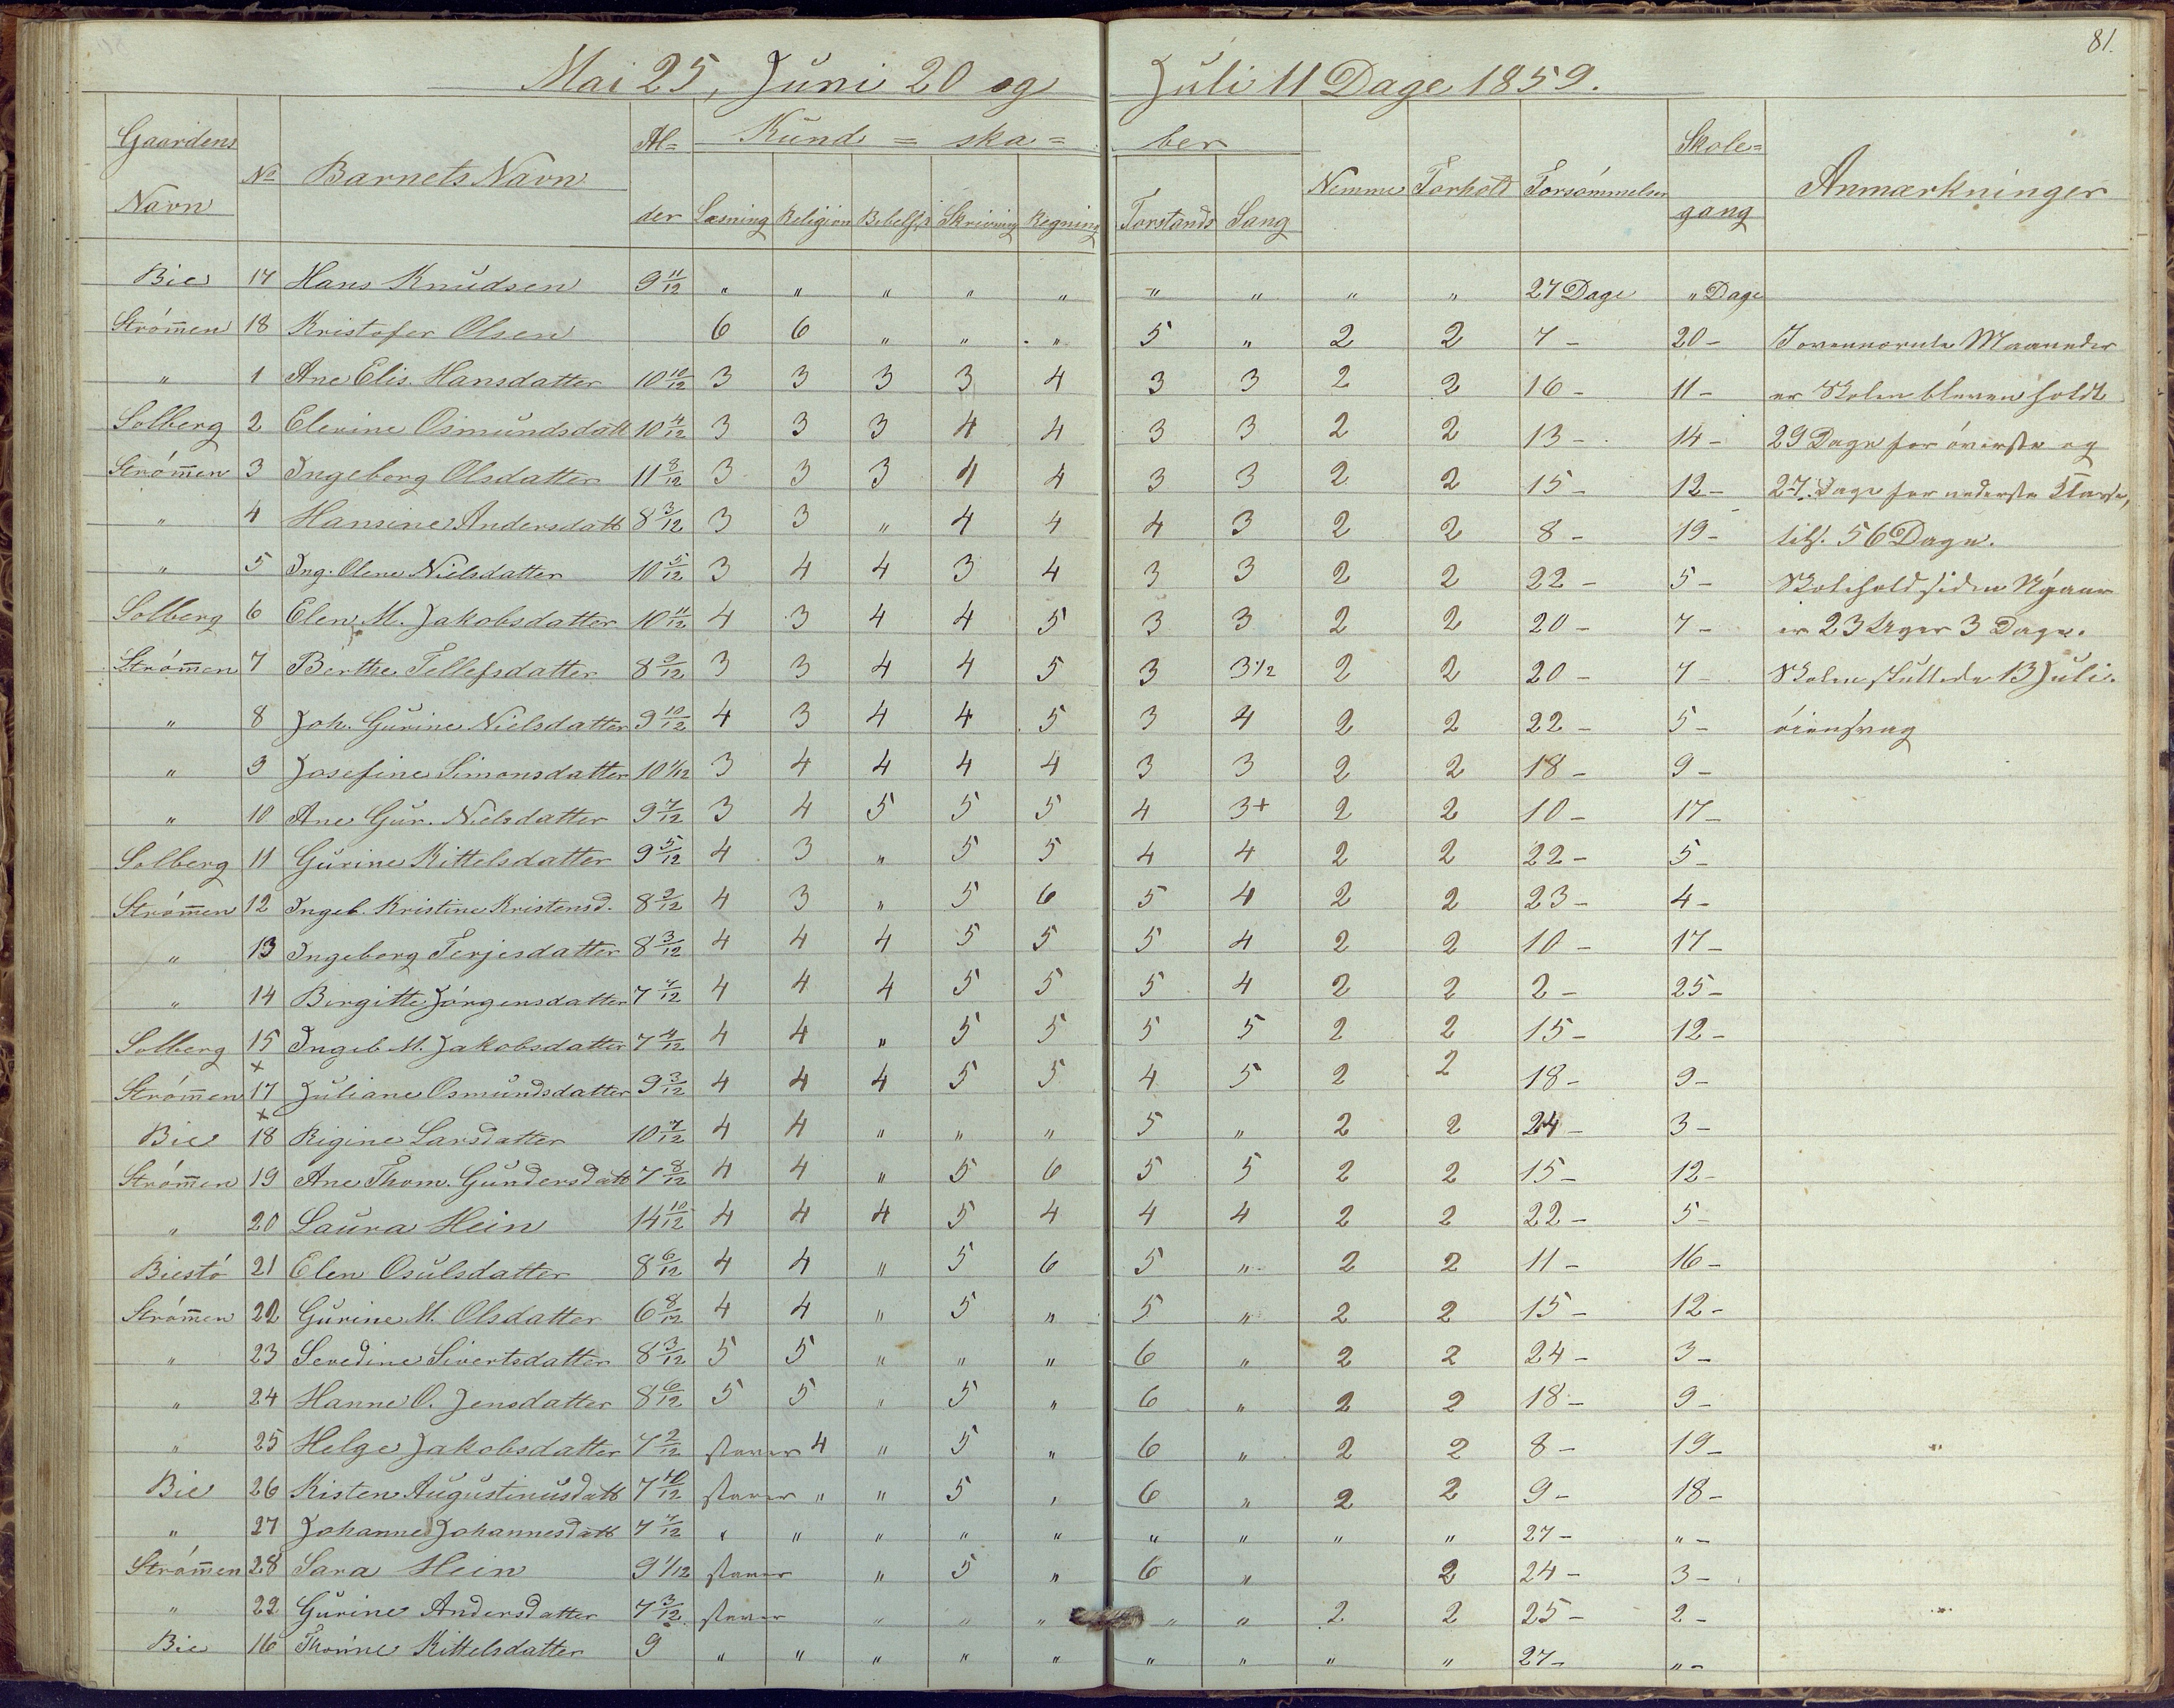 81.
Mai 25, Juni 20 og Juli 11 Dage 1859.
Gaardens Navn | No | Barnets Navn | Al=der | Kund=ska=ber | Nemme | Forhold | Forsømmelser | Skole=gang | Anmærkninger
Læsning | Religion | Bibelh. | Skrivning | Regning | Forstands | Sang
Bie 17 Hans Knudsen 9 11/12 " " " " " " " " " 27 Dage " Dage
Strømmen 18 Kristofer Olsen 6 6 " " " 5 " 2 2 7 - 20 - Ovennævnte Maaneder
" 1 Ane Elis. Hansdatter 10 10/12 3 3 3 3 4 3 3 2 2 16 - 11 - er Skolen bleven holdt
Solberg 2 Elevine Osmundsdatt 10 4/12 3 3 3 4 4 3 3 2 2 13 - 14 - 29 Dage for øverste og
Strømmen 3 Ingeborg Olsdatter 11 8/12 3 3 3 4 4 3 3 2 2 15 - 12 - 27 Dage for nederste Klasse,
" 4 Hansine Andersdatt 8 3/12 3 3 " 4 4 4 3 2 2 8 - 19 - 56 Dage.
" 5 Ing. Olene Nielsdatter 10 5/12 3 4 4 3 4 3 3 2 2 22 - 5 - Skolehold siden Nyaar
Solberg 6 Elen M. Jakobsdatter 10 11/12 4 3 4 4 5 3 3 2 2 20 - 7 - er 23 Uger 3 Dage.
Strømmen 7 Berthe Tellefsdatter 8 9/12 3 3 4 4 5 3 3 1/2 2 2 20 - 7 - Skolen sluttede 13 Juli.
" 8 Joh. Gurine Nielsdatter 9 10/12 4 3 4 4 5 3 4 2 2 22 - 5 - øiensvag
" 9 Josefine Simonsdatter 10 1/12 3 4 4 4 4 3 3 2 2 18 - 9 -
" 10 Ane Gur. Nielsdatter 9 7/12 3 4 5 5 5 4 3+ 2 2 10 - 17 -
Solberg 11 Gurine Kittelsdatter 9 5/12 4 3 " 5 5 4 4 2 2 22 - 5 -
Strømmen 12 Ingeb. Kristine Kristensd. 8 2/12 4 3 " 5 6 5 4 2 2 23 - 4 -
" 13 Ingeborg Terjesdatter 8 3/12 4 4 4 5 5 5 4 2 2 10 - 17 -
" 14 Birgitte Jørgensdatter 7 7/12 4 4 4 5 5 5 4 2 2 2 - 25 -
Solberg 15 Ingeb M. Jakobsdatter 7 4/12 4 4 " 5 5 5 5 2 2 15 - 12 -
Strømmen x 17 Juliane Osmundsdatter 9 3/12 4 4 4 5 5 4 5 2 2 18 - 9 -
Bie x 18 Rigine Larsdatter 10 7/12 4 4 " " " 5 " 2 2 24 - 3 -
Strømmen 19 Ane Thom. Gundersdatt 7 8/12 4 4 " 5 6 5 5 2 2 15 - 12 -
" 20 Laura Hein 14 10/12 4 4 4 5 4 4 4 2 2 22 - 5 -
Biestø 21 Elen Osulsdatter 8 6/12 4 4 " 5 6 5 " 2 2 11 - 16 -
Strømmen 22 Gurine M. Olsdatter 6 8/12 4 4 " 5 " 5 " 2 2 15 - 12 -
" 23 Sevedine Sivertsdatter 8 3/12 5 5 " " " 6 " 2 2 24 - 3 -
" 24 Hanne O. Jensdatter 8 6/12 5 5 " 5 " 6 " 2 2 18 - 9 -
" 25 Helge Jakobsdatter 7 2/12 staver 4 " 5 " 6 " 2 2 8 - 19 -
Bie 26 Kisten Augustinusdatt 7 10/12 staver " " 5 " 6 " 2 2 9 - 18 -
" 27 Johanne Johannesdatt 7 7/12 " " " " " " " " " 27 - " -
Strømmen 28 Sara Hein 9 1/12 staver " 5 " 6 " 2 24 - 3 -
" 22 Gurine Andersdatter 7 3/12 staver " " " " " 2 2 25 - 2 -
Bie 16 Thorine Kittelsdatter 9 " " " " " " " " " 27 - " -